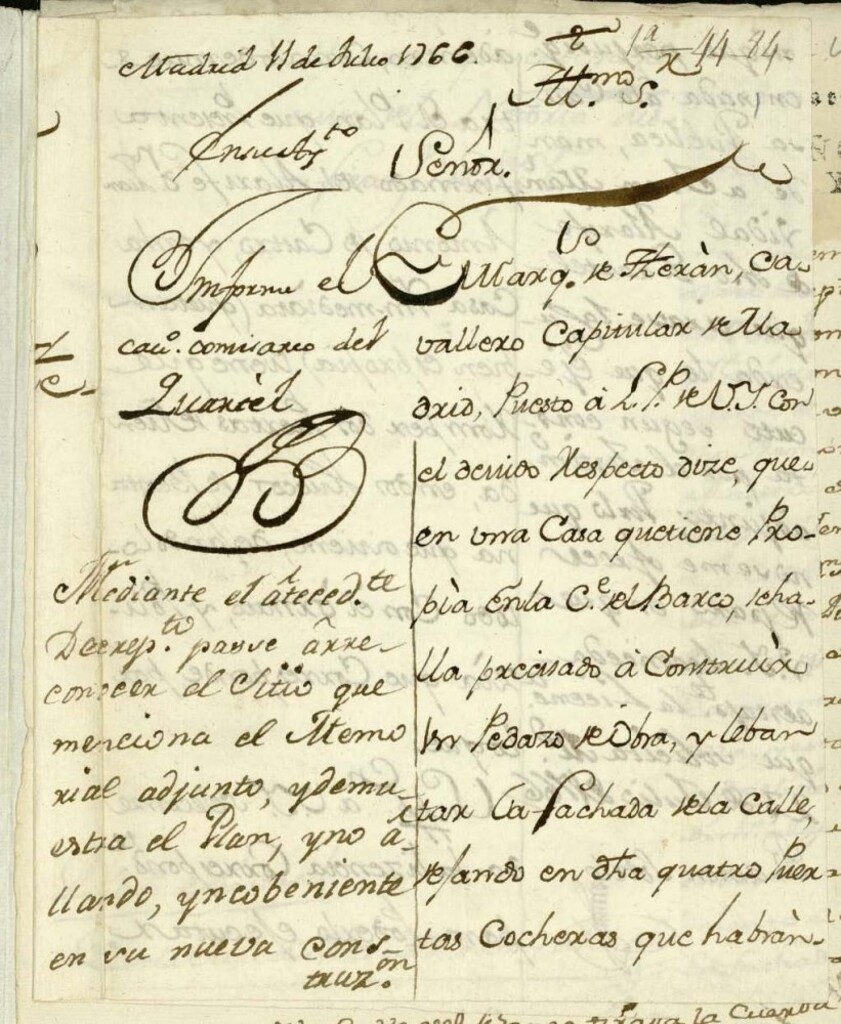 Madrid 11 de Julio 1766.
1ª 44 84
Illmo. S.
En su Abs.to
Señor.
Informe el
cavº. comisario del
Quartèl
El Marq.s de Theràn, Ca-
vallero Capitular de Ma
drid, Puesto à L. P. de V.I. con
el devido Respecto dize, que
en vna Casa que tiene Pro-
pia En la C.e del Barco, se ha-
lla precisado à Construir
Vn Pedazo de Obra, y leban
tar La fachada de la Calle,
dejando en dha quatro Puer-
tas Cocheras que habràn-
Mediante el Anteced.te
Decrep.to passe à rre-
conocer el Sitio que
menciona el Memo
rial adjunto, y demu-
estra el Plan, y no à-
llando, yncobeniente
en su nueva Cons-
truz.on
la Cuerda